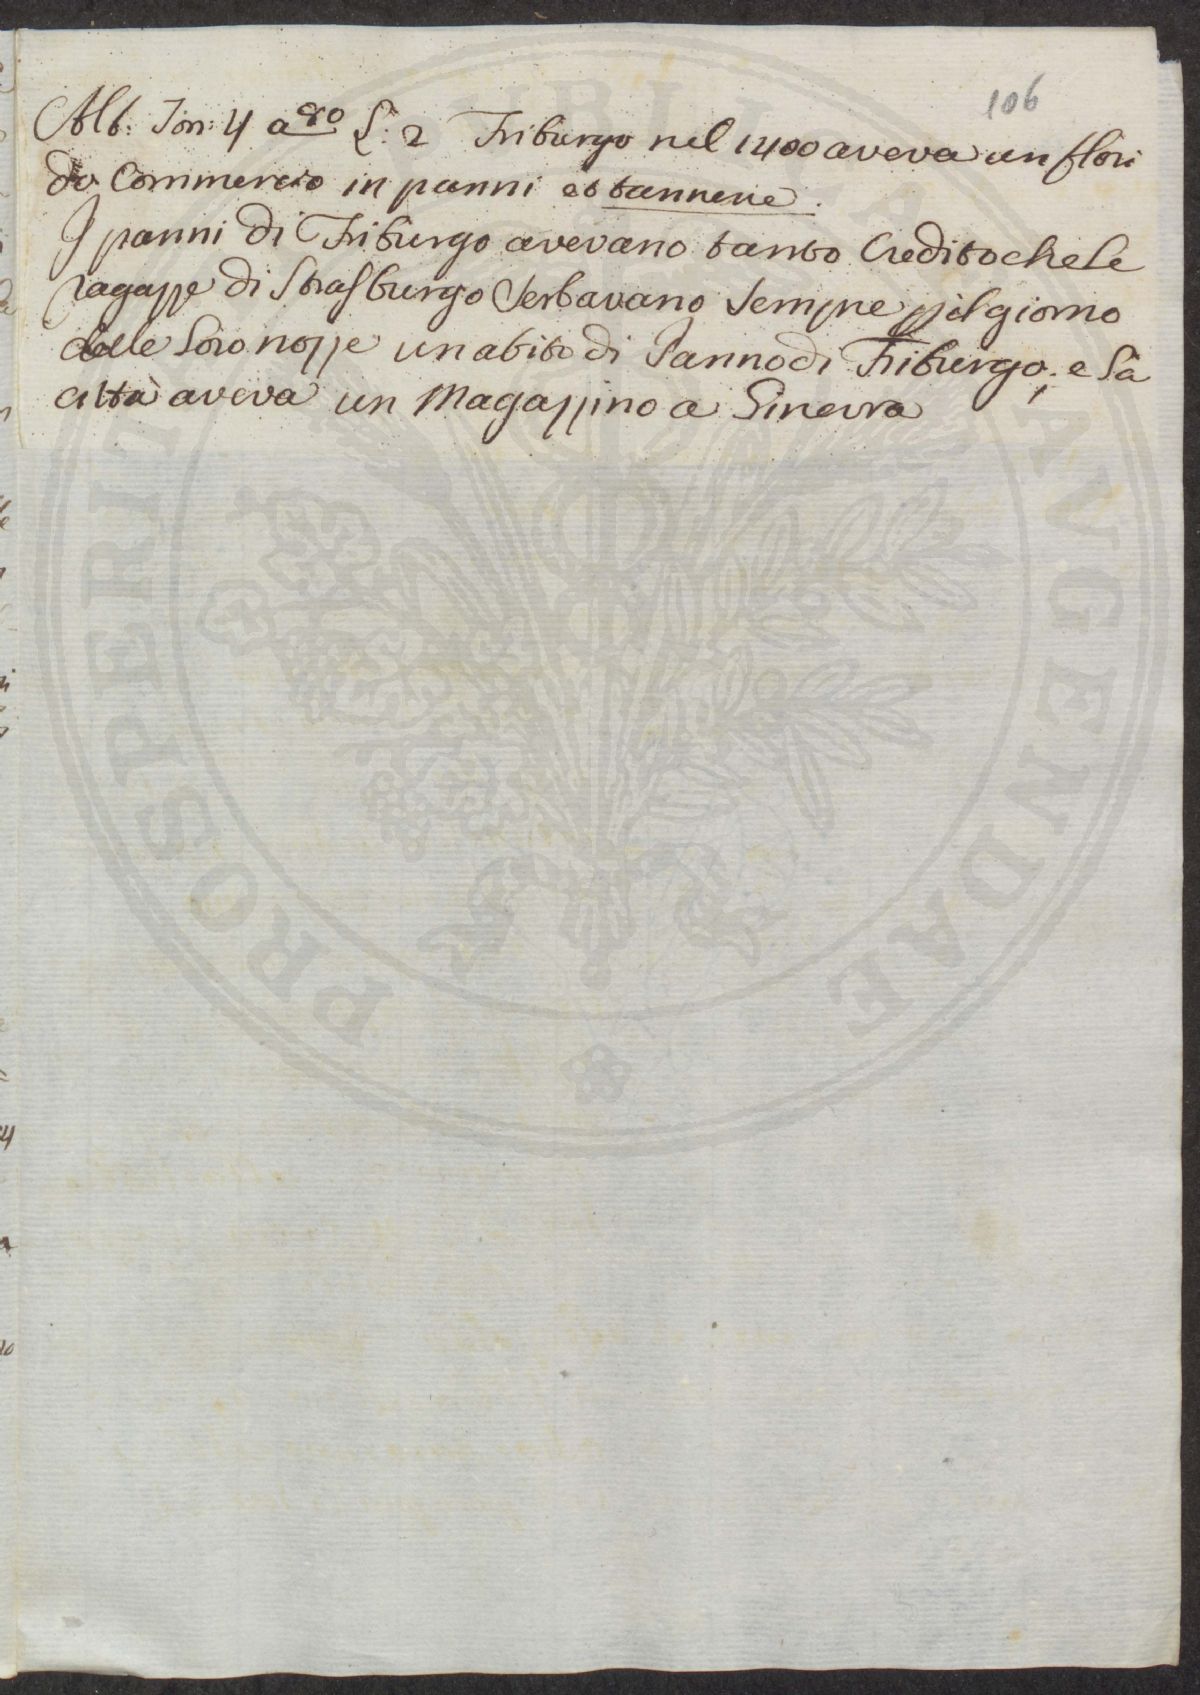 106
Alb: Tom: 4 a 80 L: 2 Friburgo nel 1400 aveva un flori
do Commercio in panni et tannerie.
I panni di Friburgo avevano tanto Credito che le
ragazze di Strasburgo serbavano sempre p il giorno
delle loro nozze un abito di Panno di Friburgo; e la
città aveva un Magazzino a Ginevra
PUBLICAE AVGENDAE PROSPERITATI